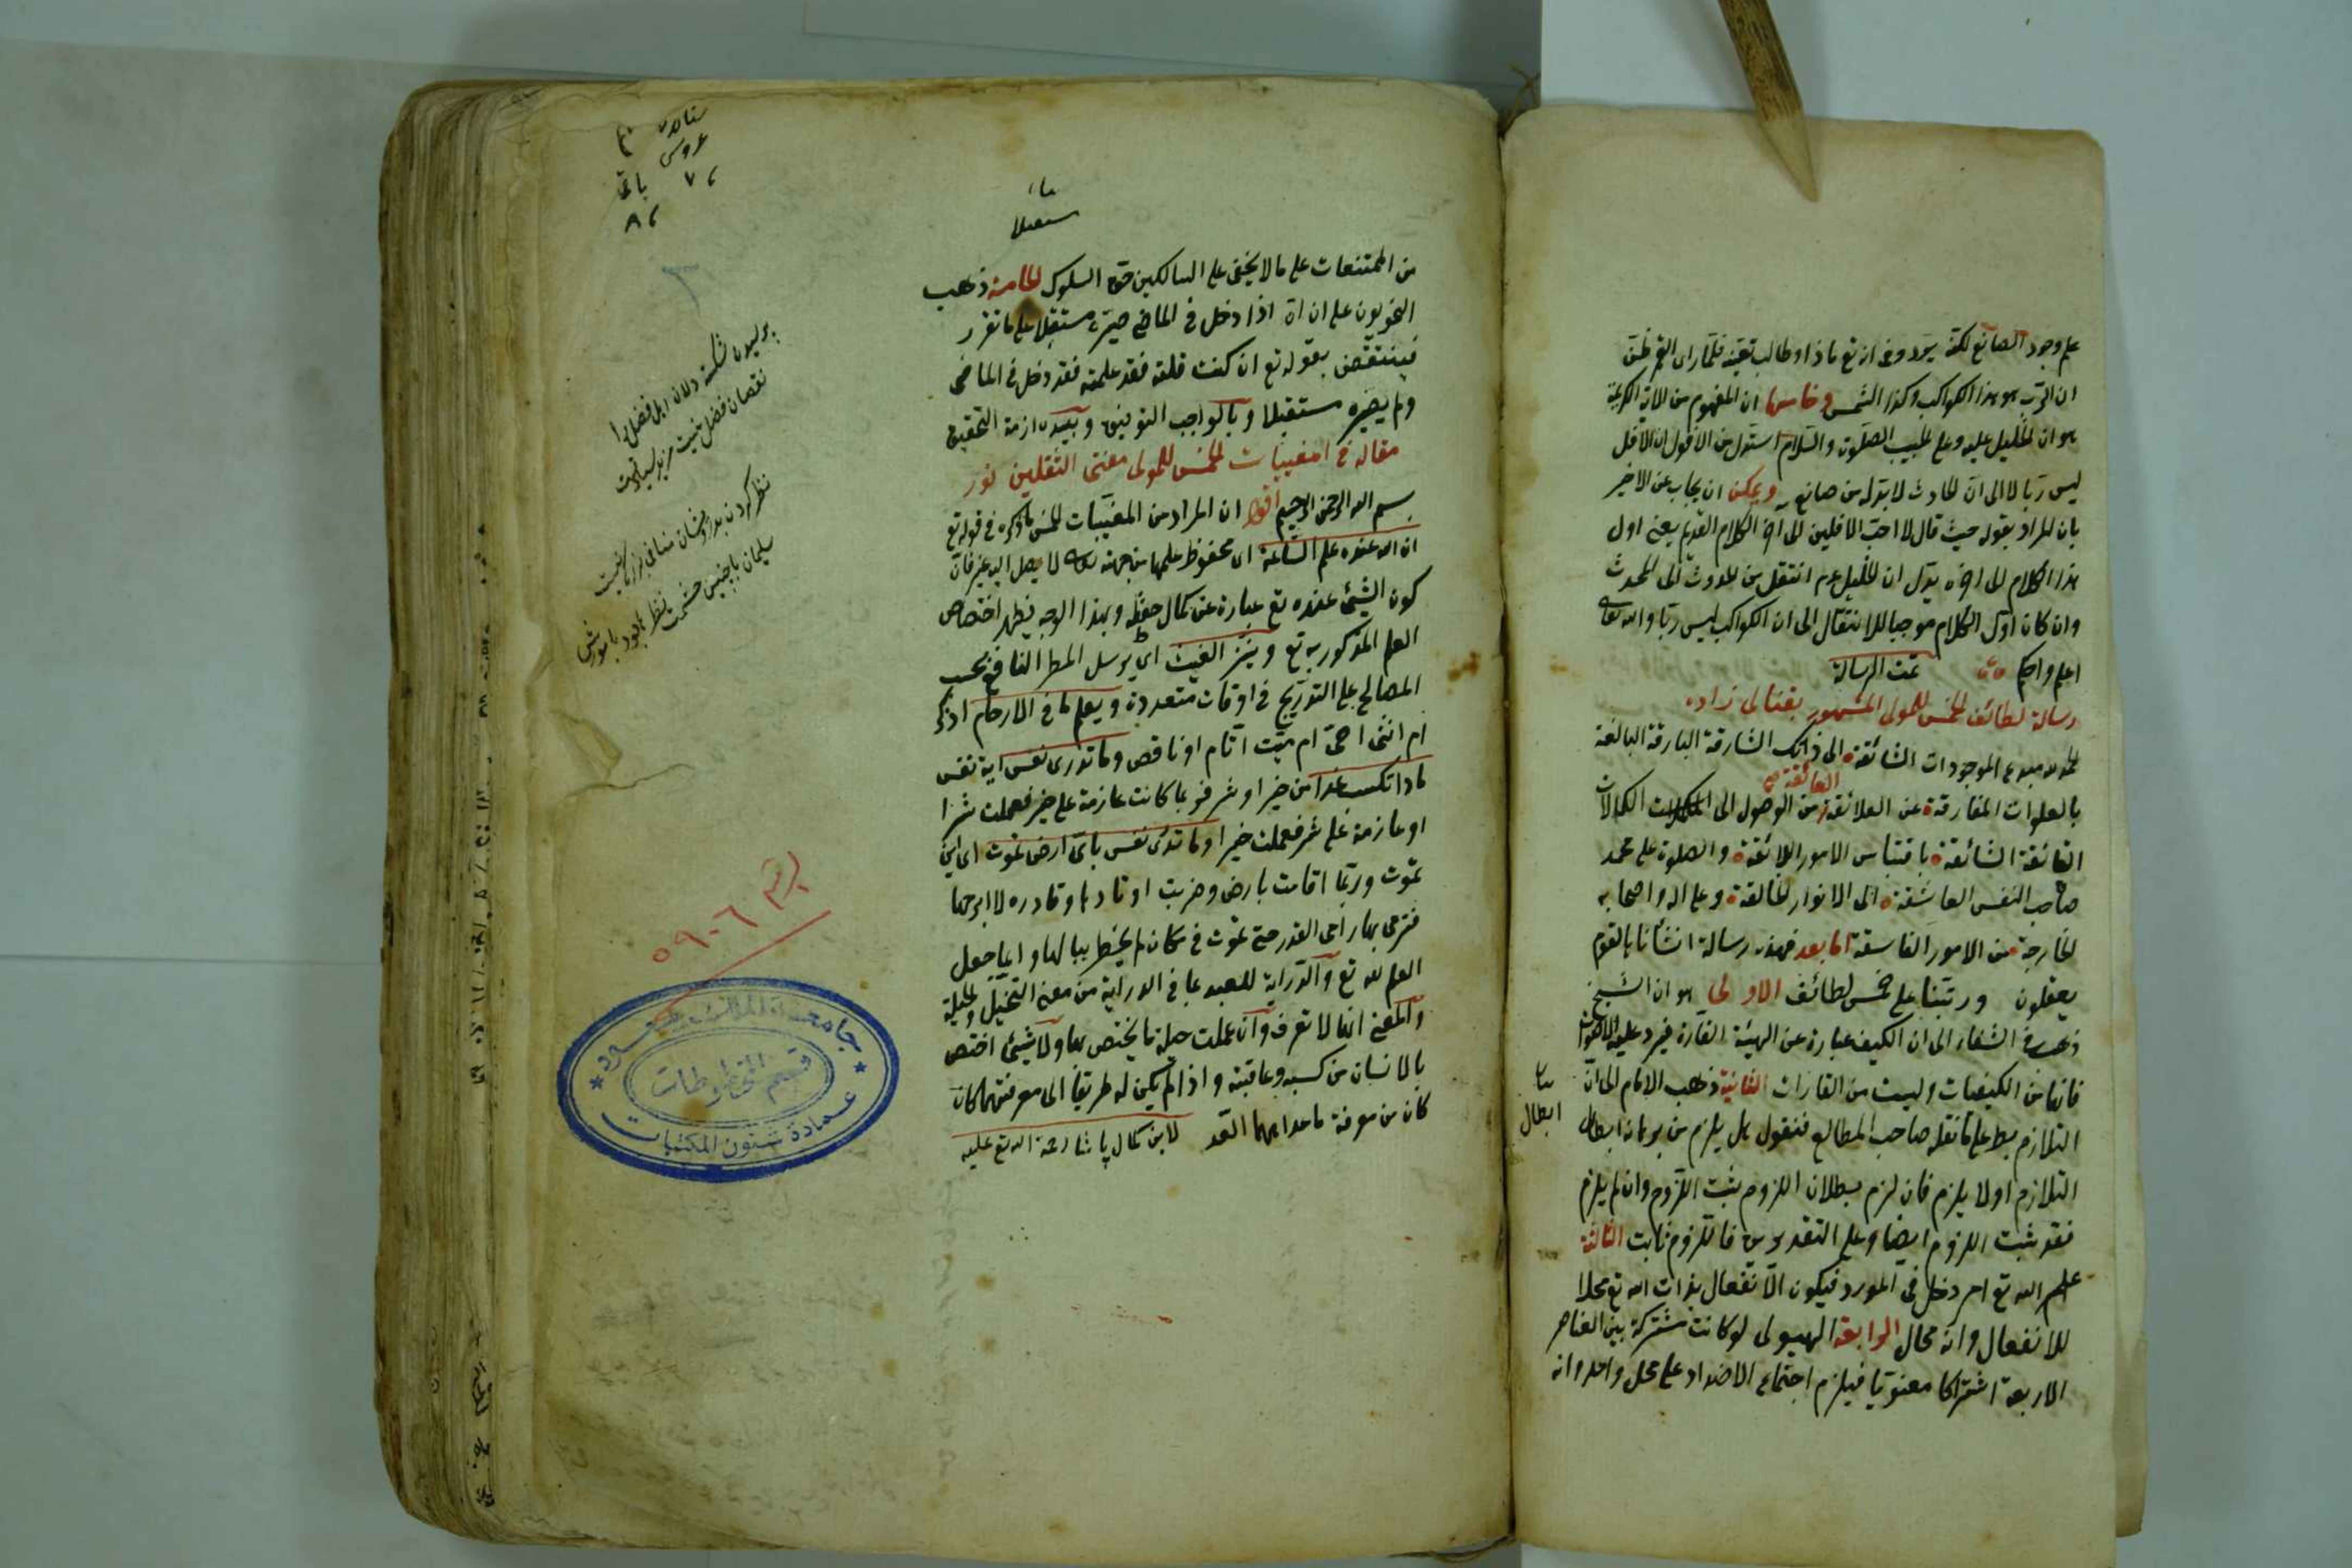 على وجود الصانع لكنه
ان الرب هو هذا الكواكب وكذا الشمس وخامسها ان المفهوم من الاية الكريمة
هو ان الخليل عليه وعلى الحبيب الصلوة والسلام استدل من الافول ان الافل
ليس ربا لا الى ان الحادث لا بد له من صانع ويمكن ان يجاب عن الاخير
بان المراد بقوله حيث قال لا احب الافلين الى اخر الكلام القديم يعنى اول
هذا الكلام الى اخره يدل ان الخليل عم انتقل من الحدوث الى المحدث
وان كان اول الكلام موجبا للانتقال الى ان الكواكب ليس ربا والله تعالى
اعلم واحكم تمت الرسالة
رسالة لطائف الخمس للمولى المشهور بقنالى زاده
الحمد لله مبدع الموجودات الشائقة الى ذاتك الشارقة البارقة البالغة
العائقة صح
بالعلوات المفارقة عن العلائقة من الوصول الى الكمالات
الفائقة الشائقة باقتباس الامور اللائقة والصلوة على محمد
صاحب النفس العاشقة الى الانوار الخالقة وعلى اله واصحابه
الخارجة من الامور الفاسقة اما بعد فهذه رسالة انشأناها لقوم
يعقلون ورتبنا على خمس لطائف الاولى هو ان الشيخ
ذهب فى الشفاء الى ان الكيف عبارة عن الهيئة القارة فيرد عليه الاصوات
فانها من الكيفيات وليست من القارات الثانية ذهب الامام الى ان
التلازم بط على ما نقله صاحب المطالع فنقول هل يلزم من برهانه ابطال
ابطال
التلازم او لا يلزم فان لزم بطلان اللزوم يثبت اللزوم وان لم يلزم
فقد ثبت اللزوم ايضا وعلى التقديرين فاللزوم ثابت الثالثة
علم الله تع امر دخل فى المورد فيكون الانفعال بذات الله تع محلا
للانفعال وانه محال الرابعة الهيولى لو كانت مشتركة بين العناصر
الاربعة اشتراكا معنويا فيلزم اجتماع الاضداد على محل واحد وانه
مستقبلا
من الممتنعات على ما لا يخفى على السالكين حق السلوك الخامسة ذهب
النحويون على ان ان اذا دخل فى الماضى صيره مستقبلا على ما تقرر
فينتقض بقوله تع ان كنت قلته فقد علمته فقد دخل فى الماضى
ولم يصيره مستقبلا وبالواجب التوفيق وبيده ازمة التحقيق
مقالة فى المغيبات الخمس للمولى مفتى الثقلين نور
بسم الله الرحمن الرحيم اقول ان المراد من المغيبات الخمس ما ذكره فى قوله تع
ان الله عنده علم الساعة اى محفوظ علمها من جهته لا يصل اليه غيره فان
كون الشئ عنده تع عبارة عن كمال حفظه وبهذا الوجه يظهر اختصاص
العلم المذكور به تع وينزل الغيث اى يرسل المطر النافع بحسب
المصالح على التدريج فى اوقات متعددة ويعلم ما فى الارحام اذكر
ام انثى احى ام ميت اتام او ناقص وما تدرى نفس اية نفس
ماذا تكسب غدا من خير او شر فربما كانت عازمة على خير فعملت شرا
او عازمة على شر فعملت خيرا وما تدرى نفس باى ارض تموت اى اين
تموت وربما اقامت بارض وضربت اوتادها لا ابرحها
فترمى بها رامى القدر حتى تموت فى مكان لم يخطر ببالها وانما جعل
العلم لله تع والدراية للعبد لما فى الدراية من معنى التخيل والحيلة
والمعنى انها لا تعرف وان عملت حيلة ما يختص بها ولا شئ اختص
بالانسان من كسبه وعاقبته واذا لم يكن له طريقا الى معرفتهما كان
كان من معرفة ما عداهما ابعد لابن كمال پاشا رحمة الله تع عليه
عروس
باقى
نظر كردن بدرويشان منافى بزرگى نيست
سليمان با چنين حشمت نظر بود با مورش
٥٩٠٦
جامعة الملك سعود
قسم المخطوطات
عمادة شئون المكتبات